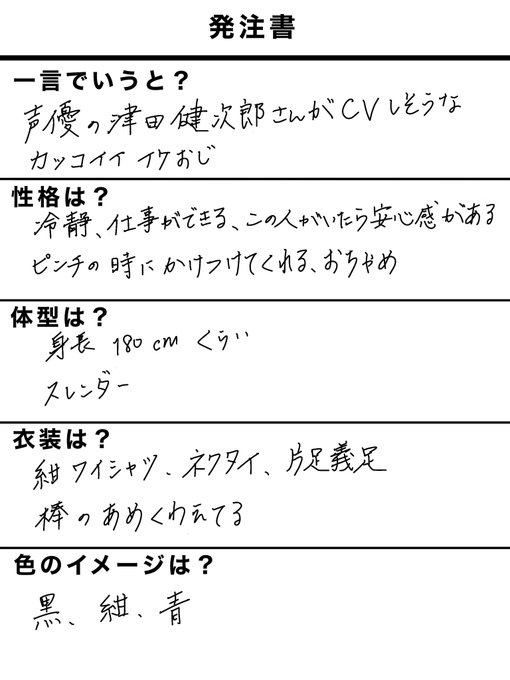 発注書
一言でいうと？
声優の津田健次郎さんがCVしそうな
カッコイイイケおじ
性格は？
冷静、仕事ができる、この人がいたら安心感がある
ピンチの時にかけつけてくれる、おちゃめ
体型は？
身長 180cmくらい
スレンダー
衣装は？
紺ワイシャツ、ネクタイ、片足義足
棒のあめくわえてる
色のイメージは？
黒、紺、青